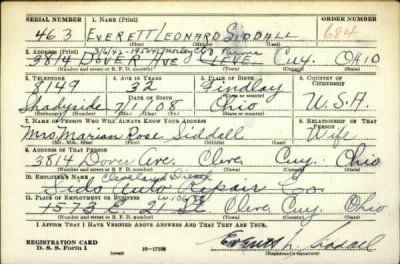 SERIAL NUMBER 1. NAME (Print) ORDER NUMBER
463 EVERETT LEONARD SIDDALL 684
(First) (Middle) (Last)
2. ADDRESS (Print) 3/6/42 - 19504 Parma
3814 DOVER AVE CLEVE. Cuy. OHIO
(Number and street or R. F. D. number) (Town) (County) (State)
3. TELEPHONE 4. AGE IN YEARS 5. PLACE OF BIRTH 6. COUNTRY OF CITIZENSHIP
8149 32 Findlay
DATE OF BIRTH (Town or county)
Shadyside 7/1/08 Ohio U.S.A.
(Exchange) (Number) (Mo.) (Day) (Yr.) (State or country)
7. NAME OF PERSON WHO WILL ALWAYS KNOW YOUR ADDRESS 8. RELATIONSHIP OF THAT PERSON
Mrs. Marian Rose Siddall Wife
(Mr., Mrs., Miss) (First) (Middle) (Last)
9. ADDRESS OF THAT PERSON
3814 Dover Ave. Cleve. Cuy. Ohio
(Number and street or R. F. D. number) (Town) (County) (State)
10. EMPLOYER'S NAME Cleveland Diesel
Sido Auto Repair Co.
11. PLACE OF EMPLOYMENT OR BUSINESS W. 106
1573 E 21 St Cleve. Cuy. Ohio
(Number and street or R. F. D. number) (Town) (County) (State)
I AFFIRM THAT I HAVE VERIFIED ABOVE ANSWERS AND THAT THEY ARE TRUE.
REGISTRATION CARD
D. S. S. Form 1 (over) 16-17105 Everett L. Siddall
(Registrant's signature)